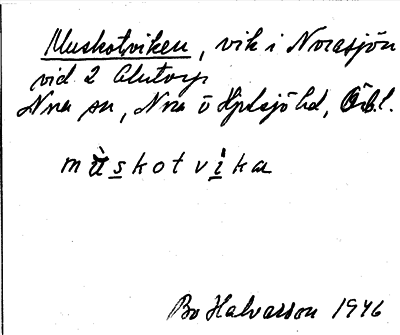 Muskotviken, vik i Norasjön
vid 2 Alntorp
Nra sn, Nra o Hjulsjö hd, Örbl.
mùskotvika
Bo Halvarsson 1946